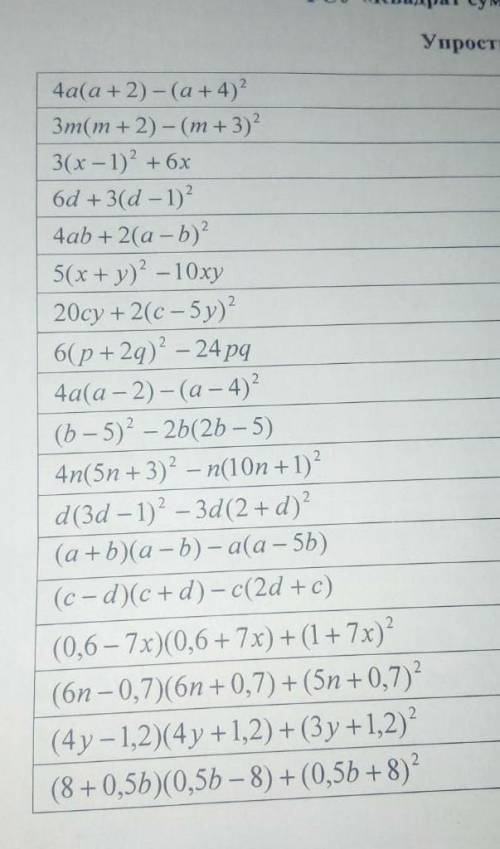 Упрост
4a(a + 2) – (a + 4)²
3m(m + 2) – (m + 3)²
3(x – 1)² + 6x
6d + 3(d – 1)²
4ab + 2(a – b)²
5(x + y)² – 10xy
20cy + 2(c – 5y)²
6(p + 2q)² – 24pq
4a(a – 2) – (a – 4)²
(b – 5)² – 2b(2b – 5)
4n(5n + 3)² – n(10n + 1)²
d(3d – 1)² – 3d(2 + d)²
(a + b)(a – b) – a(a – 5b)
(c – d)(c + d) – c(2d + c)
(0,6 – 7x)(0,6 + 7x) + (1 + 7x)²
(6n – 0,7)(6n + 0,7) + (5n + 0,7)²
(4y – 1,2)(4y + 1,2) + (3y + 1,2)²
(8 + 0,5b)(0,5b – 8) + (0,5b + 8)²